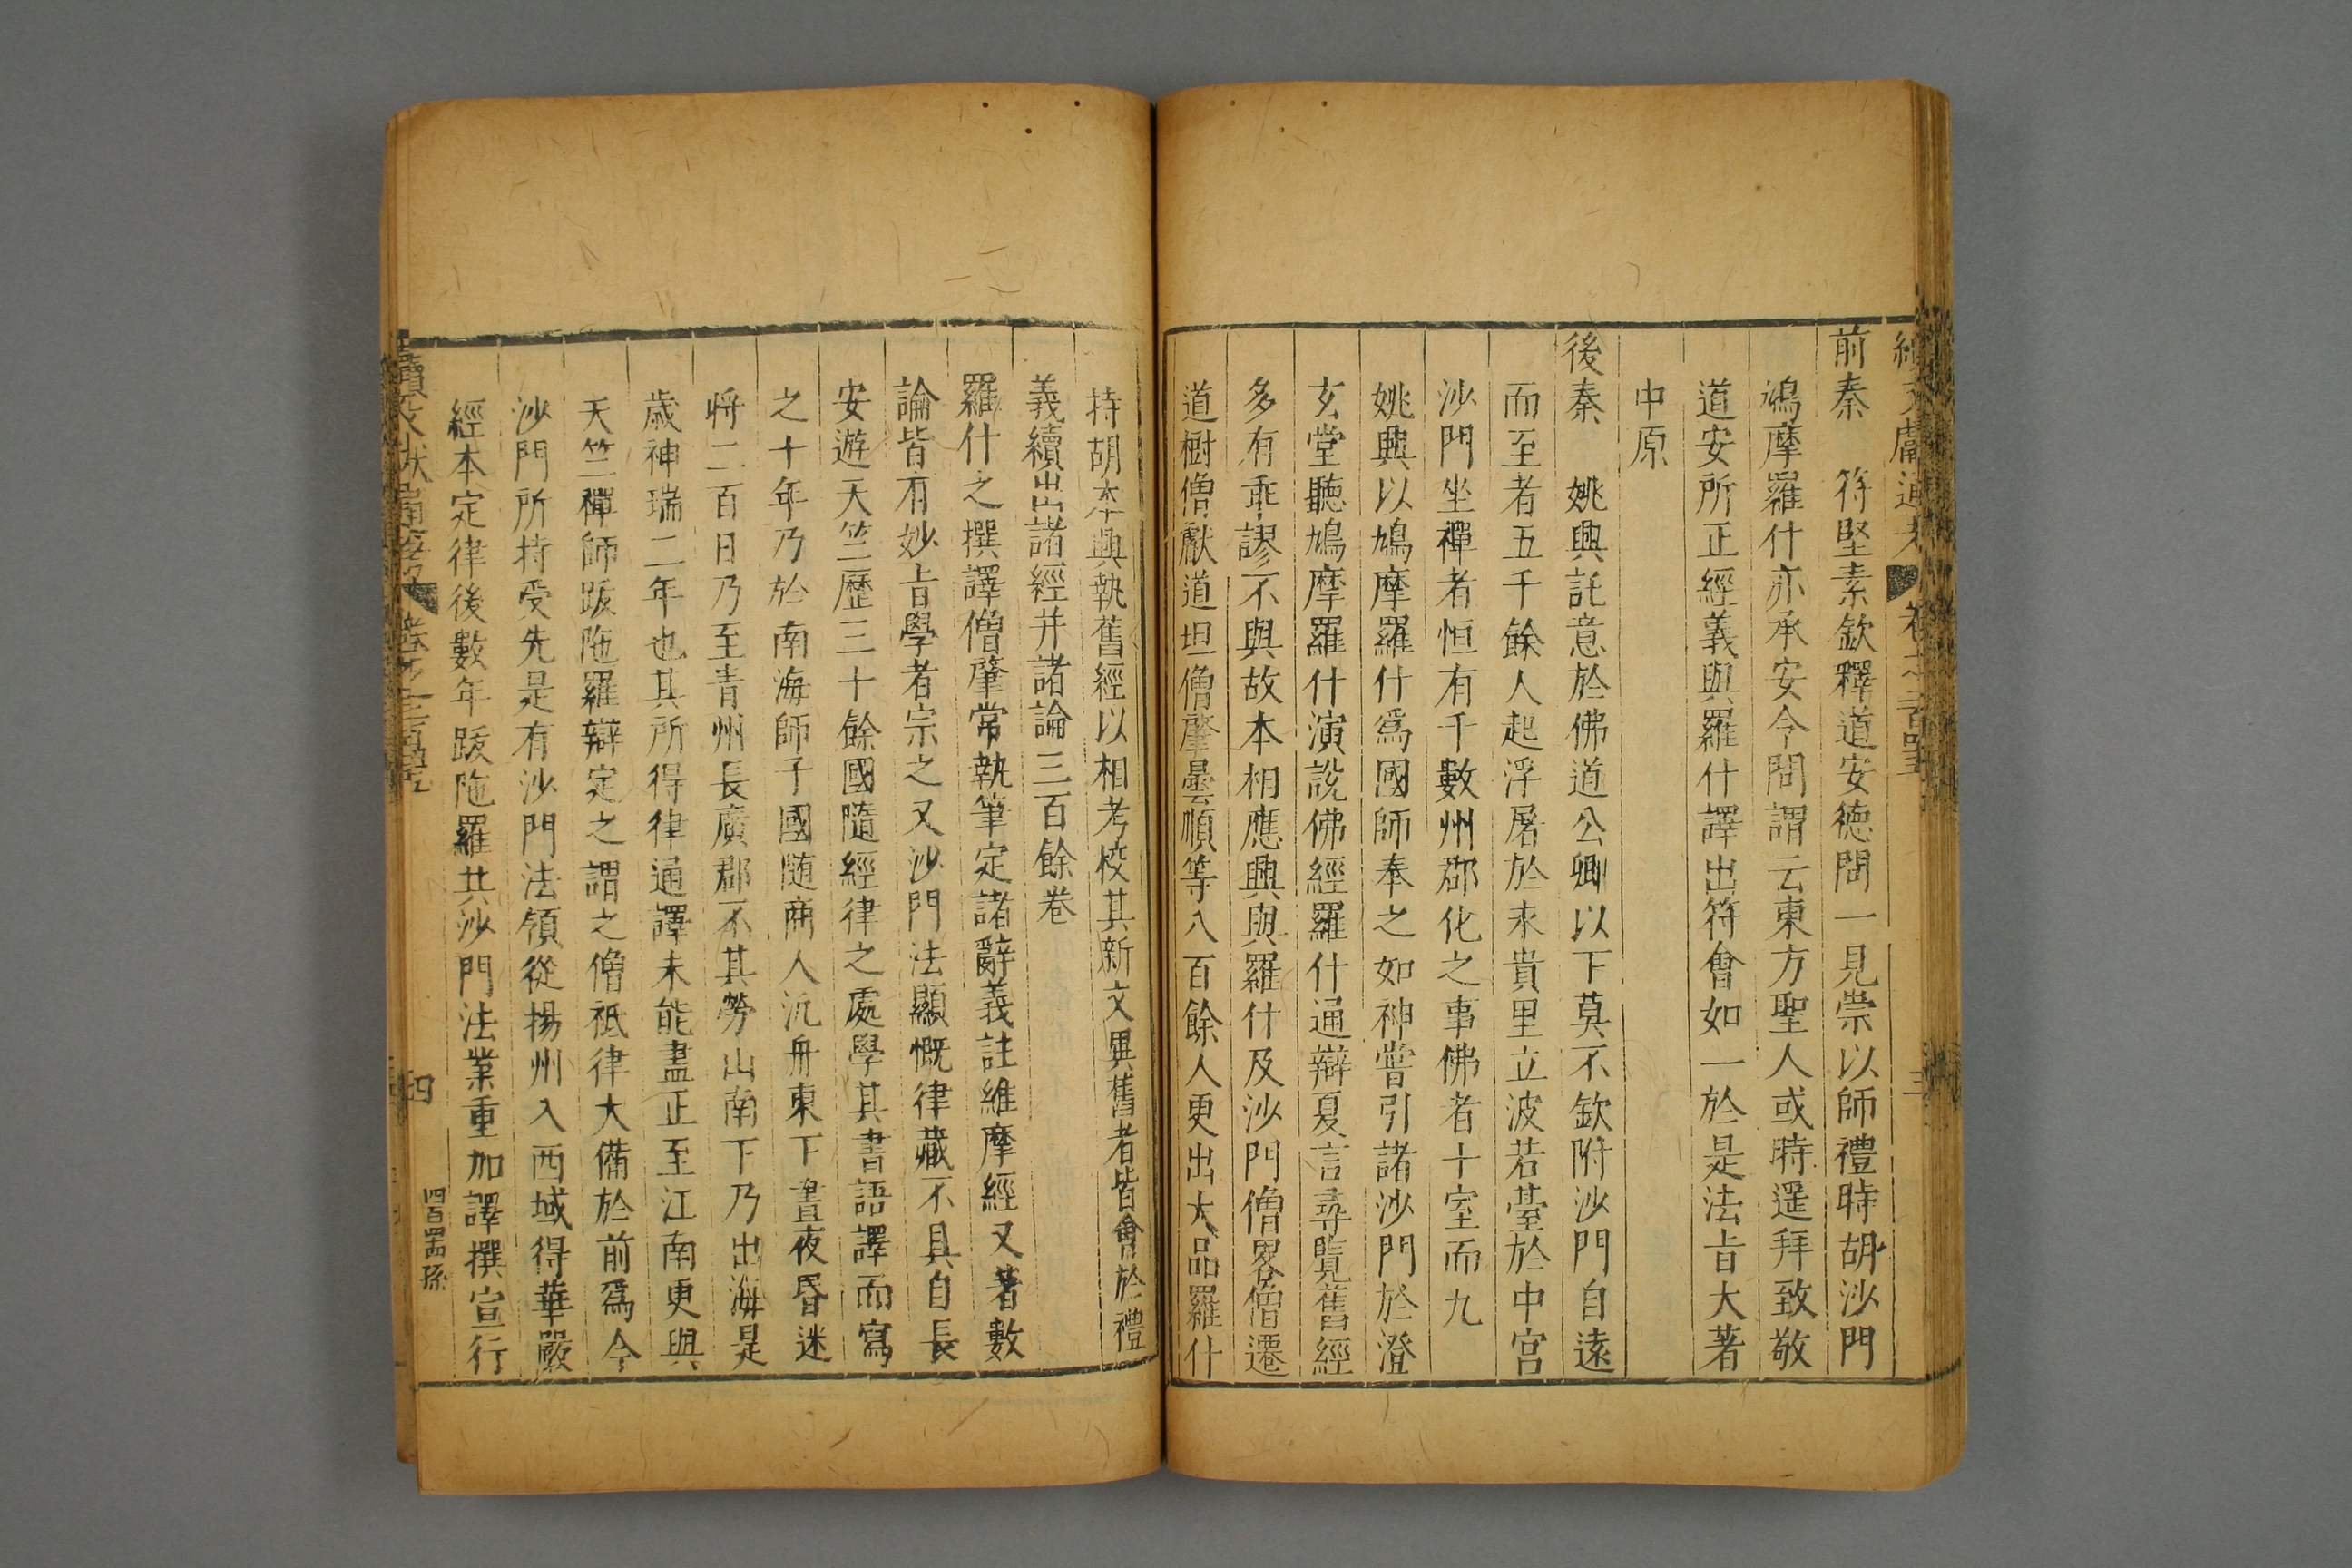 前秦　符堅素欽釋道安德問一見崇以師禮時胡沙門
鳩摩羅什亦承安令問謂云東方聖人或時遥拜致敬
道安所正經義與羅什譯出符會如一於是法旨大著
中原
後秦　姚興託意於佛道公卿以下莫不欽附沙門自遠
而至者五千餘人起浮屠於永貴里立波若臺於中宮
沙門坐禪者恒有千數州郡化之事佛者十室而九
姚興以鳩摩羅什爲國師奉之如神嘗引諸沙門於澄
玄堂聽鳩摩羅什演說佛經羅什通辯夏言尋覽舊經
多有乖謬不與故本相應興與羅什及沙門僧䂮僧遷
道樹僧叡道坦僧肇曇順等八百餘人更出大品羅什
持胡本興執舊經以相考校其新文異舊者皆會於禮
義續出諸經并諸論三百餘卷
羅什之撰譯僧肇常執筆定諸辭義註維摩經又著數
論皆有妙旨學者宗之又沙門法顯慨律藏不具自長
安遊天竺歷三十餘國隨經律之處學其書語譯而寫
之十年乃於南海師子國随商人汎舟東下晝夜昏迷
將二百日乃至青州長廣郡不其勞山南下乃出海是
歲神瑞二年也其所得律通譯未能盡正至江南更與
天竺禪師跋陁羅辯定之謂之僧祇律大備於前爲今
沙門所持受先是有沙門法領從揚州入西域得華嚴
經本定律後數年跋陁羅共沙門法業重加譯撰宣行
續文獻通考　卷之二百四
四